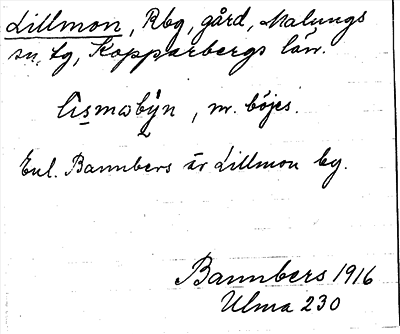 Lillmon, Rbg, gård, Malungs
sn, tg, Kopparbergs län.
, m. böjes.
Enl. Bannbers är Lillmon by.
Bannbers 1916
Ulma 230